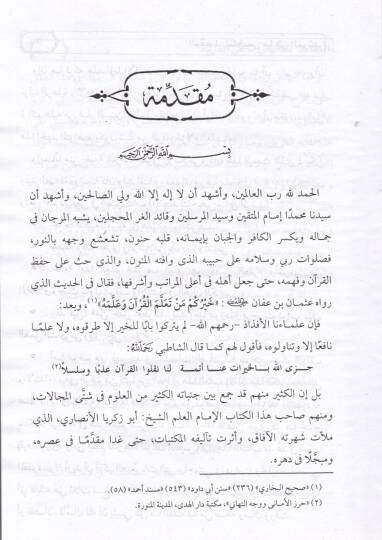 مقدمة
بسم الله الرحمن الرحيم
الحمد لله رب العالمين، وأشهد أن لا إله إلا الله ولي الصالحين، وأشهد أن
سيدنا محمدًا إمام المتقين وسيد المرسلين وقائد الغر المحجلين، يشبه المرجان في
جماله ويكسر الكافر والجبان بإيمانه، قلبه حنون، تشعشع وجهه بالنور،
فصلوات ربي وسلامه على حبيبه الذى وافته المنون، والذى حث على حفظ
القرآن وفهمه، حتى جعل أهله في أعلى المراتب وأشرفها، فقال في الحديث الذي
رواه عثمان بن عفان رضي الله عنه: «خَيْرُكُمْ مَنْ تَعَلَّمَ الْقُرْآنَ وَعَلَّمَهُ»(١)، وبعد:
فإن علماءنا الأفذاذ -رحمهم الله- لم يتركوا بابًا للخير إلا طرقوه، ولا علمًا
نافعًا إلا وتناولوه، فأقول لهم كما قال الشاطبي رحمه الله:
جـزى الله بـالخيرات عنـا أئمـة لنا نقلوا القرآن عذبًا وسلسلًا(٢)
بل إن الكثير منهم قد جمع بين جنباته الكثير من العلوم في شتَّى المجالات،
ومنهم صاحب هذا الكتاب الإمام العلم الشيخ: أبو زكريا الأنصاري، الذي
ملأت شهرته الآفاق، وأثرت تآليفه المكتبات، حتى غدا مقدَّمًا في عصره،
ومبجَّلًا في دهره.
(١) «صحيح البخاري» (٢٣٦) «سنن أبي داود» (٥٤٣) «مسند أحمد» (٥٨).
(٢) «حرز الأماني ووجه التهاني»، مكتبة دار الهدى، المدينة المنورة.